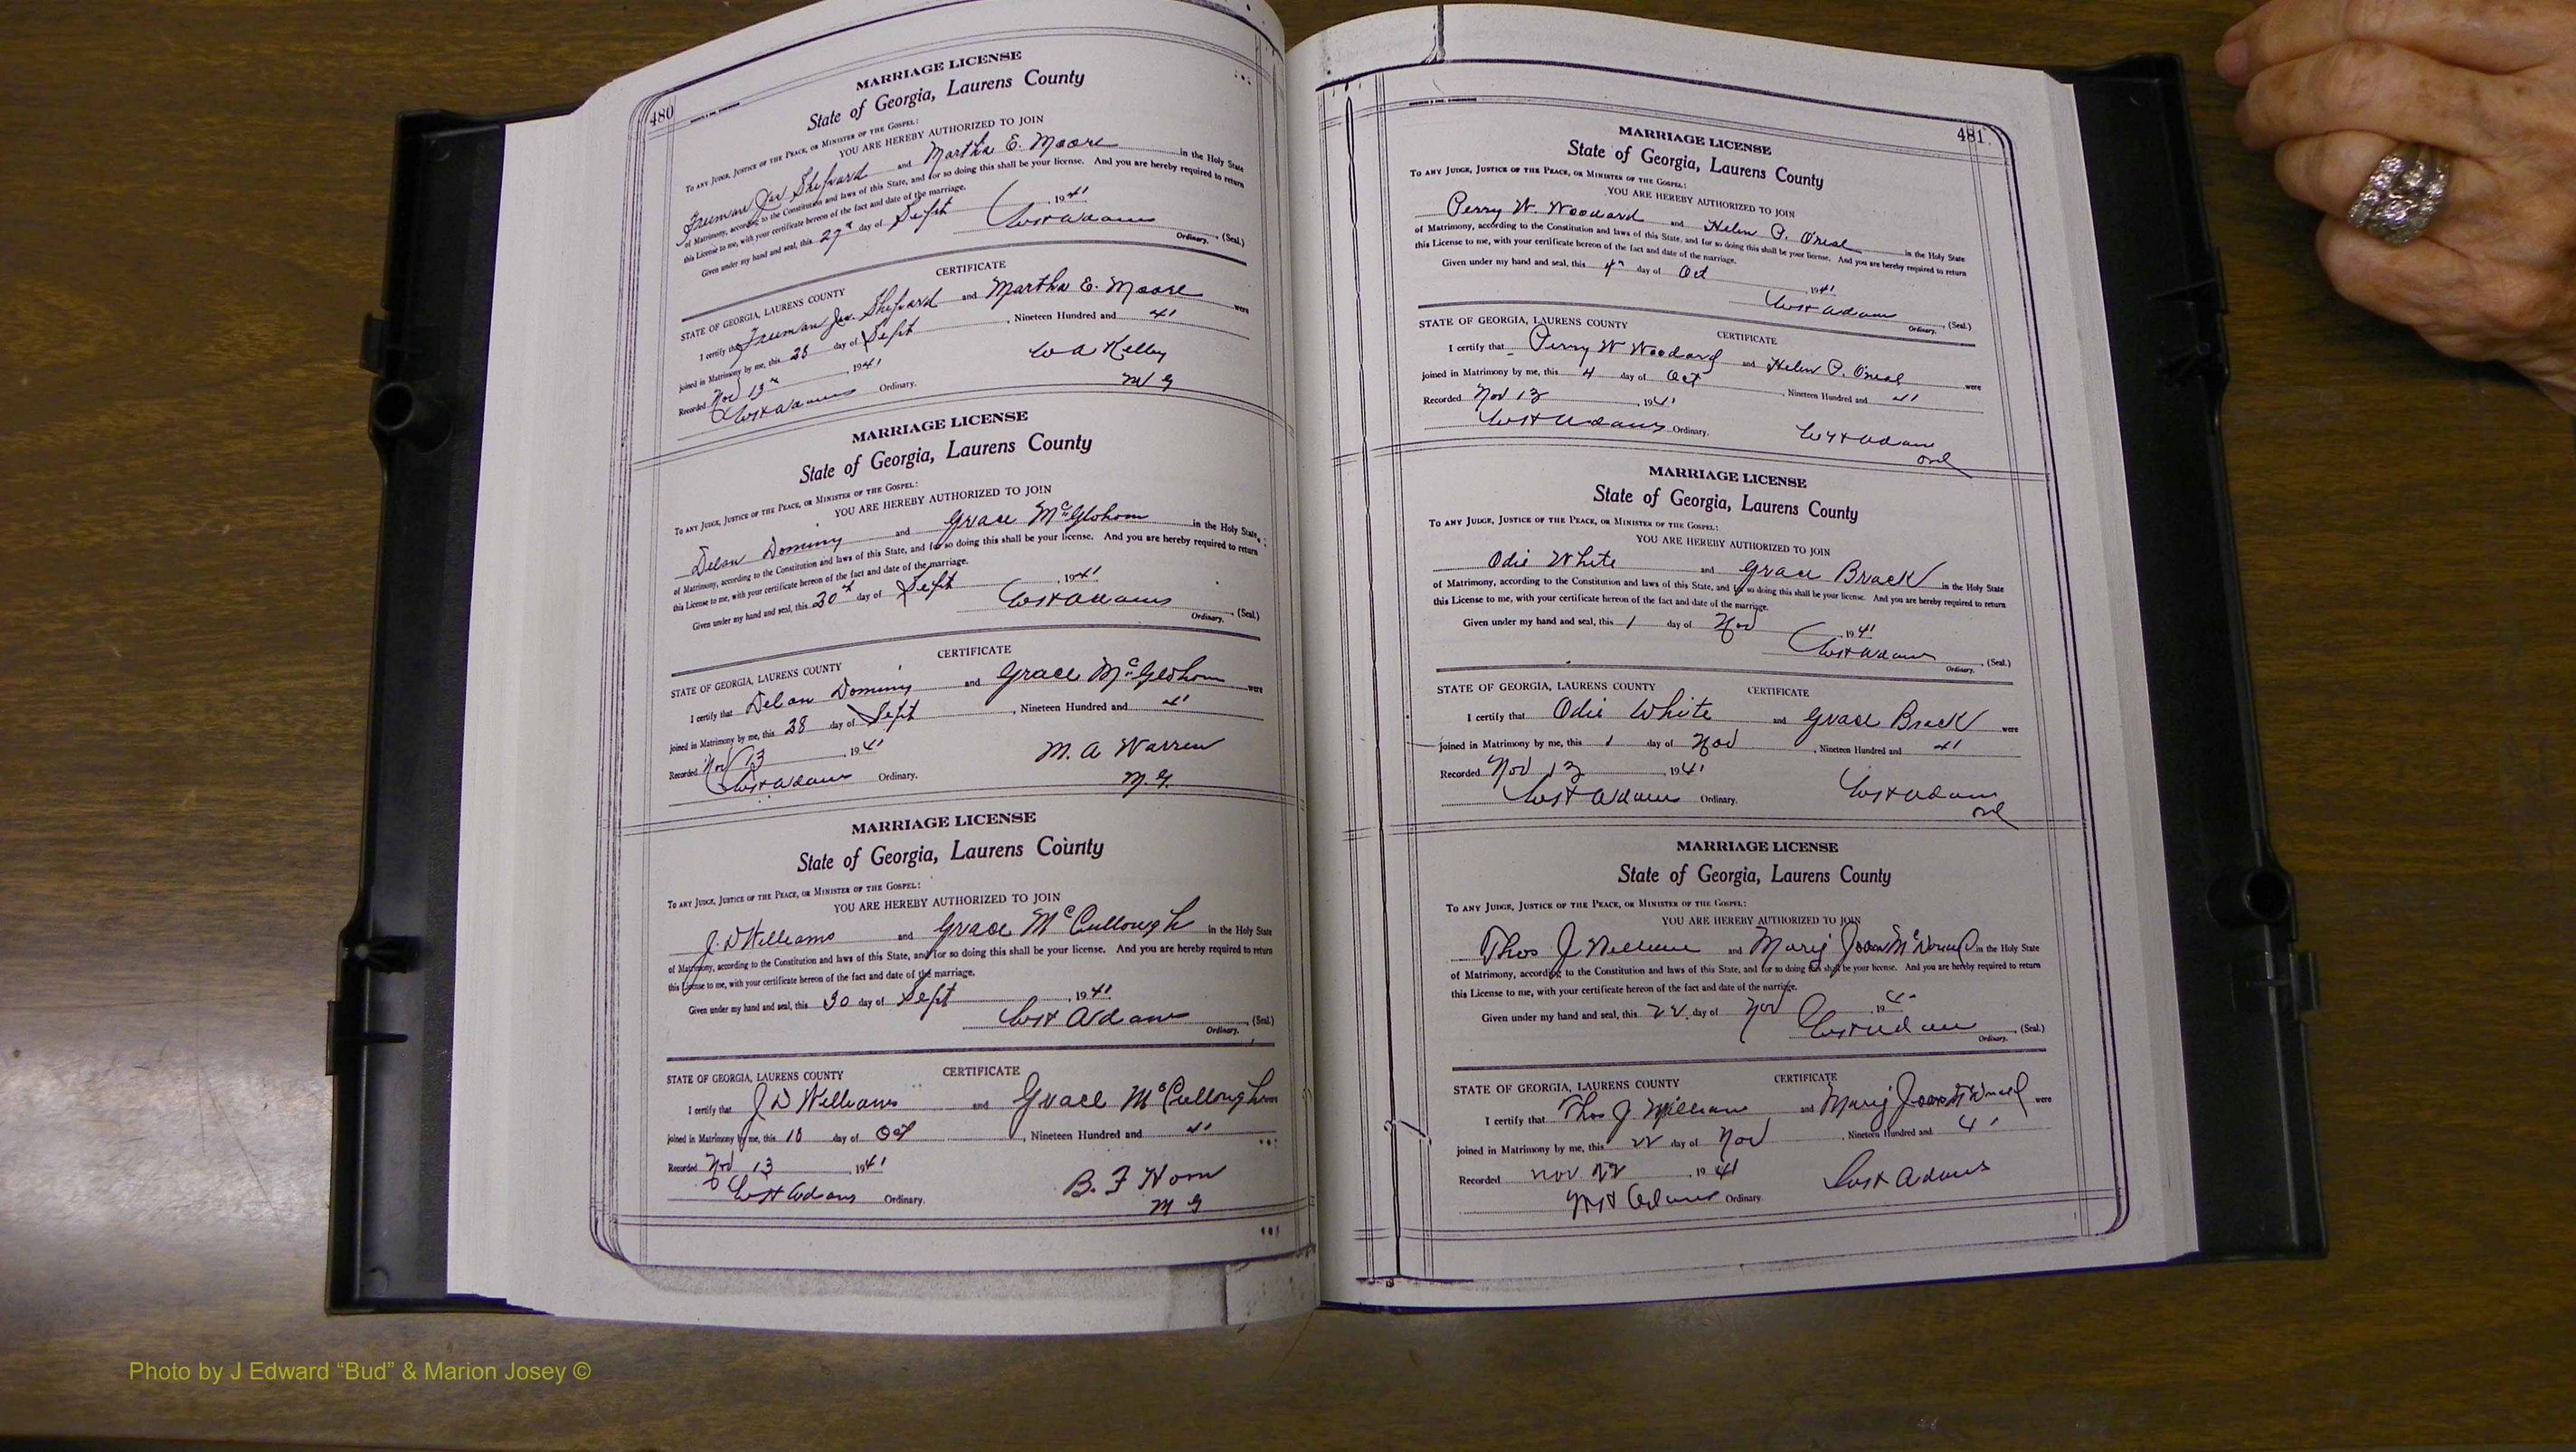 480
MARRIAGE LICENSE
State of Georgia, Laurens County
To any Judge, Justice of the Peace, or Minister of the Gospel:
YOU ARE HEREBY AUTHORIZED TO JOIN
Truman Jas Shepard and Martha E. Moore in the Holy State
of Matrimony, according to the Constitution and laws of this State, and for so doing this shall be your license. And you are hereby required to return
this License to me, with your certificate hereon of the fact and date of the marriage.
Given under my hand and seal, this 27th day of Sept, 1941
Ordinary. (Seal.)
CERTIFICATE
STATE OF GEORGIA, LAURENS COUNTY
I certify that Truman Shepard and Martha E. Moore were
joined in Matrimony by me, this 28 day of Sept, Nineteen Hundred and 41
Recorded Nov 13th, 1941
W A Kelley
Ordinary.
M G
MARRIAGE LICENSE
State of Georgia, Laurens County
To any Judge, Justice of the Peace, or Minister of the Gospel:
YOU ARE HEREBY AUTHORIZED TO JOIN
Delan Dominy and Grace McGlohom in the Holy State
of Matrimony, according to the Constitution and laws of this State, and for so doing this shall be your license. And you are hereby required to return
this License to me, with your certificate hereon of the fact and date of the marriage.
Given under my hand and seal, this day of Sept, 1941
Wst Adams Ordinary. (Seal.)
CERTIFICATE
STATE OF GEORGIA, LAURENS COUNTY
I certify that Delan Dominy and Grace McGlohom were
joined in Matrimony by me, this 28 day of Sept, Nineteen Hundred and 41
Recorded Nov 13, 1941
M. A Warren
Ordinary.
M. G.
MARRIAGE LICENSE
State of Georgia, Laurens County
To any Judge, Justice of the Peace, or Minister of the Gospel:
YOU ARE HEREBY AUTHORIZED TO JOIN
J. D Williams and Grace McCullough in the Holy State
of Matrimony, according to the Constitution and laws of this State, and for so doing this shall be your license. And you are hereby required to return
this License to me, with your certificate hereon of the fact and date of the marriage.
Given under my hand and seal, this 30 day of Sept, 1941
Adams Ordinary. (Seal.)
CERTIFICATE
STATE OF GEORGIA, LAURENS COUNTY
I certify that J D Williams and Grace McCullough were
joined in Matrimony by me, this 10 day of Oct, Nineteen Hundred and 41
Recorded Nov 13, 1941
B. F Horn
Adams Ordinary.
M G
481
MARRIAGE LICENSE
State of Georgia, Laurens County
To any Judge, Justice of the Peace, or Minister of the Gospel:
YOU ARE HEREBY AUTHORIZED TO JOIN
Perry W. Woodard and Helen P. O'neal in the Holy State
of Matrimony, according to the Constitution and laws of this State, and for so doing this shall be your license. And you are hereby required to return
this License to me, with your certificate hereon of the fact and date of the marriage.
Given under my hand and seal, this 4th day of Oct, 1941
Adams Ordinary. (Seal.)
STATE OF GEORGIA, LAURENS COUNTY CERTIFICATE
I certify that Perry W Woodard and Helen P. O'neal were
joined in Matrimony by me, this 4 day of Oct, Nineteen Hundred and 41
Recorded Nov 13, 1941
Adams Ordinary. Adams
Ord
MARRIAGE LICENSE
State of Georgia, Laurens County
To any Judge, Justice of the Peace, or Minister of the Gospel:
YOU ARE HEREBY AUTHORIZED TO JOIN
Odie White and Grace Brack in the Holy State
of Matrimony, according to the Constitution and laws of this State, and for so doing this shall be your license. And you are hereby required to return
this License to me, with your certificate hereon of the fact and date of the marriage.
Given under my hand and seal, this 1 day of Nov, 1941
Adams Ordinary. (Seal.)
STATE OF GEORGIA, LAURENS COUNTY CERTIFICATE
I certify that Odie White and Grace Brack were
joined in Matrimony by me, this 1 day of Nov, Nineteen Hundred and 41
Recorded Nov 13, 1941
Adams Ordinary. Adams
Ord
MARRIAGE LICENSE
State of Georgia, Laurens County
To any Judge, Justice of the Peace, or Minister of the Gospel:
YOU ARE HEREBY AUTHORIZED TO JOIN
Thos J and in the Holy State
of Matrimony, according to the Constitution and laws of this State, and for so doing this shall be your license. And you are hereby required to return
this License to me, with your certificate hereon of the fact and date of the marriage.
Given under my hand and seal, this 22 day of Nov 19
Adams Ordinary. (Seal.)
STATE OF GEORGIA, LAURENS COUNTY CERTIFICATE
I certify that Thos J. and were
joined in Matrimony by me, this 22 day of Nov, Nineteen Hundred and 41
Recorded Nov 22, 1941
Adams Ordinary. Adams
Photo by J Edward “Bud” & Marion Josey ©